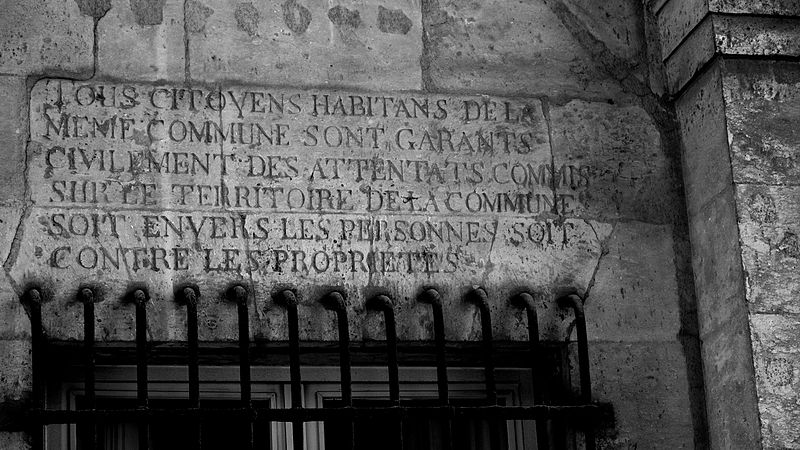 TOUS CITOYENS HABITANS DE LA
MEME COMMUNE SONT GARANTS
CIVILEMENT DES ATTENTATS COMMIS
SUR LE TERRITOIRE DE LA COMMUNE
SOIT ENVERS LES PERSONNES SOIT
CONTRE LES PROPRIETES